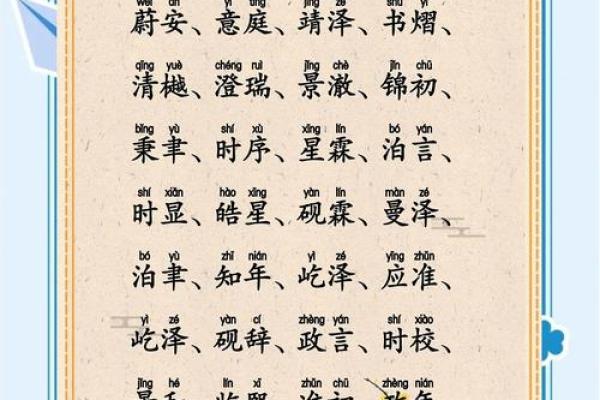 wèi ān yì tíng jìng zé shū yì
蔚安、意庭、靖泽、书熠、
qīng yuè chéng ruì jǐng chè jǐn chū
清樾、澄瑞、景澈、锦初、
bǐng yù shí xù xīng lín bó yán
秉聿、时序、星霖、泊言、
shí xiǎn hào xīng yàn lín màn zé
时显、皓星、砚霖、曼泽、
bó yù zhī nián yì zé yīng zhǔn
泊聿、知年、屹泽、应准、
yì zé yàn cí zhèng yán shí xiào
屹泽、砚辞、政言、时校、
jǐng hé lín xī zhǔn chū zhèng nián
景和、临熙、准初、政年、